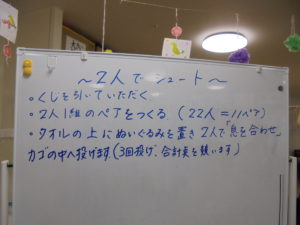 ～2人でシュート～
・くじを引いていただく
・2人1組のペアをつくる。(22人=11ペア)
・タオルの上にぬいぐるみを置き2人で「息を合わせ」
カゴの中へ投げます。(3回投げ、合計点を競います)